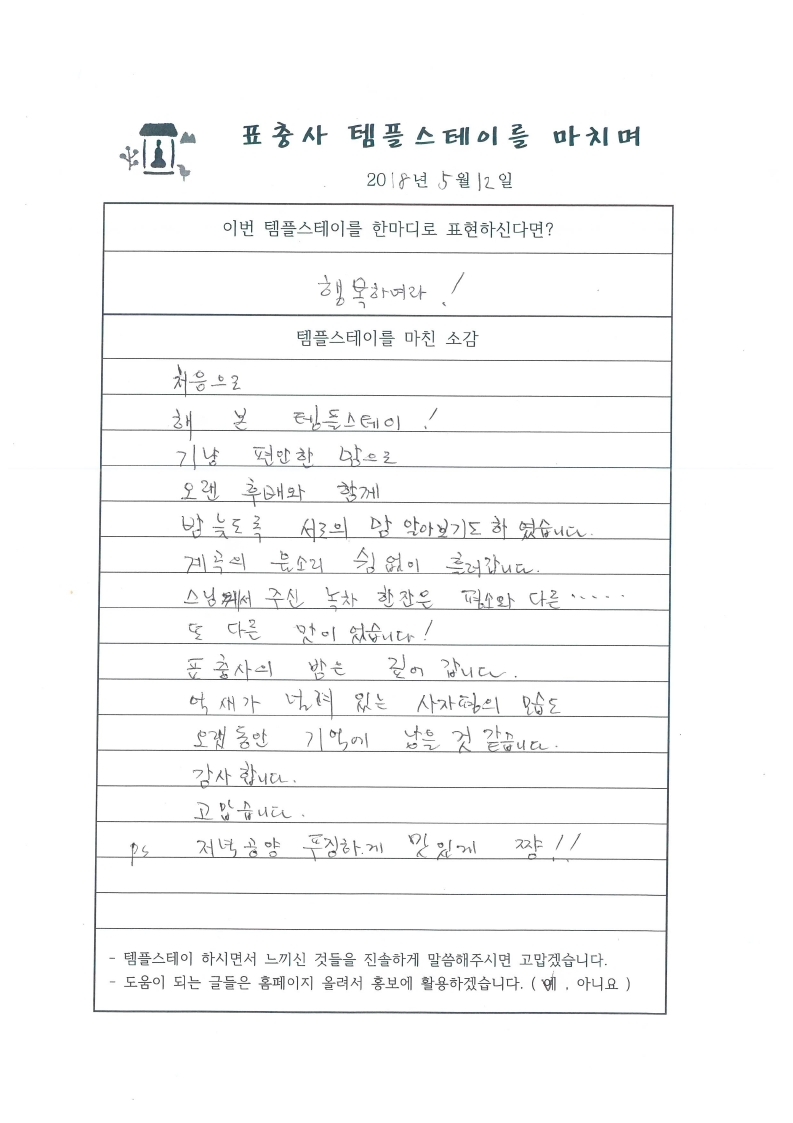 표충사 템플스테이를 마치며
2018년 5월 12일
이번 템플스테이를 한마디로 표현하신다면?
행복하여라!
템플스테이를 마친 소감
처음으로
해 본 템플스테이!
기냥 편안한 맘으로
오랜 후배와 함께
밤 늦도록 서로의 맘 알아보기도 하였습니다.
계곡의 물소리 쉼없이 흘러갑니다.
스님께서 주신 녹차 한잔은 평소와 다른.....
또 다른 맛이었습니다!
표충사의 밤은 깊어 갑니다.
억새가 널려 있는 사자평의 모습도
오랩동안 기억에 남을 것 같습니다.
감사합니다.
고맙습니다.
ps 저녁공양 푸짐하게 맛있게 짱!!
- 템플스테이 하시면서 느끼신 것들을 진솔하게 말씀해주시면 고맙겠습니다.
- 도움이 되는 글들은 홈페이지 올려서 홍보에 활용하겠습니다. ( 예 , 아니요 )